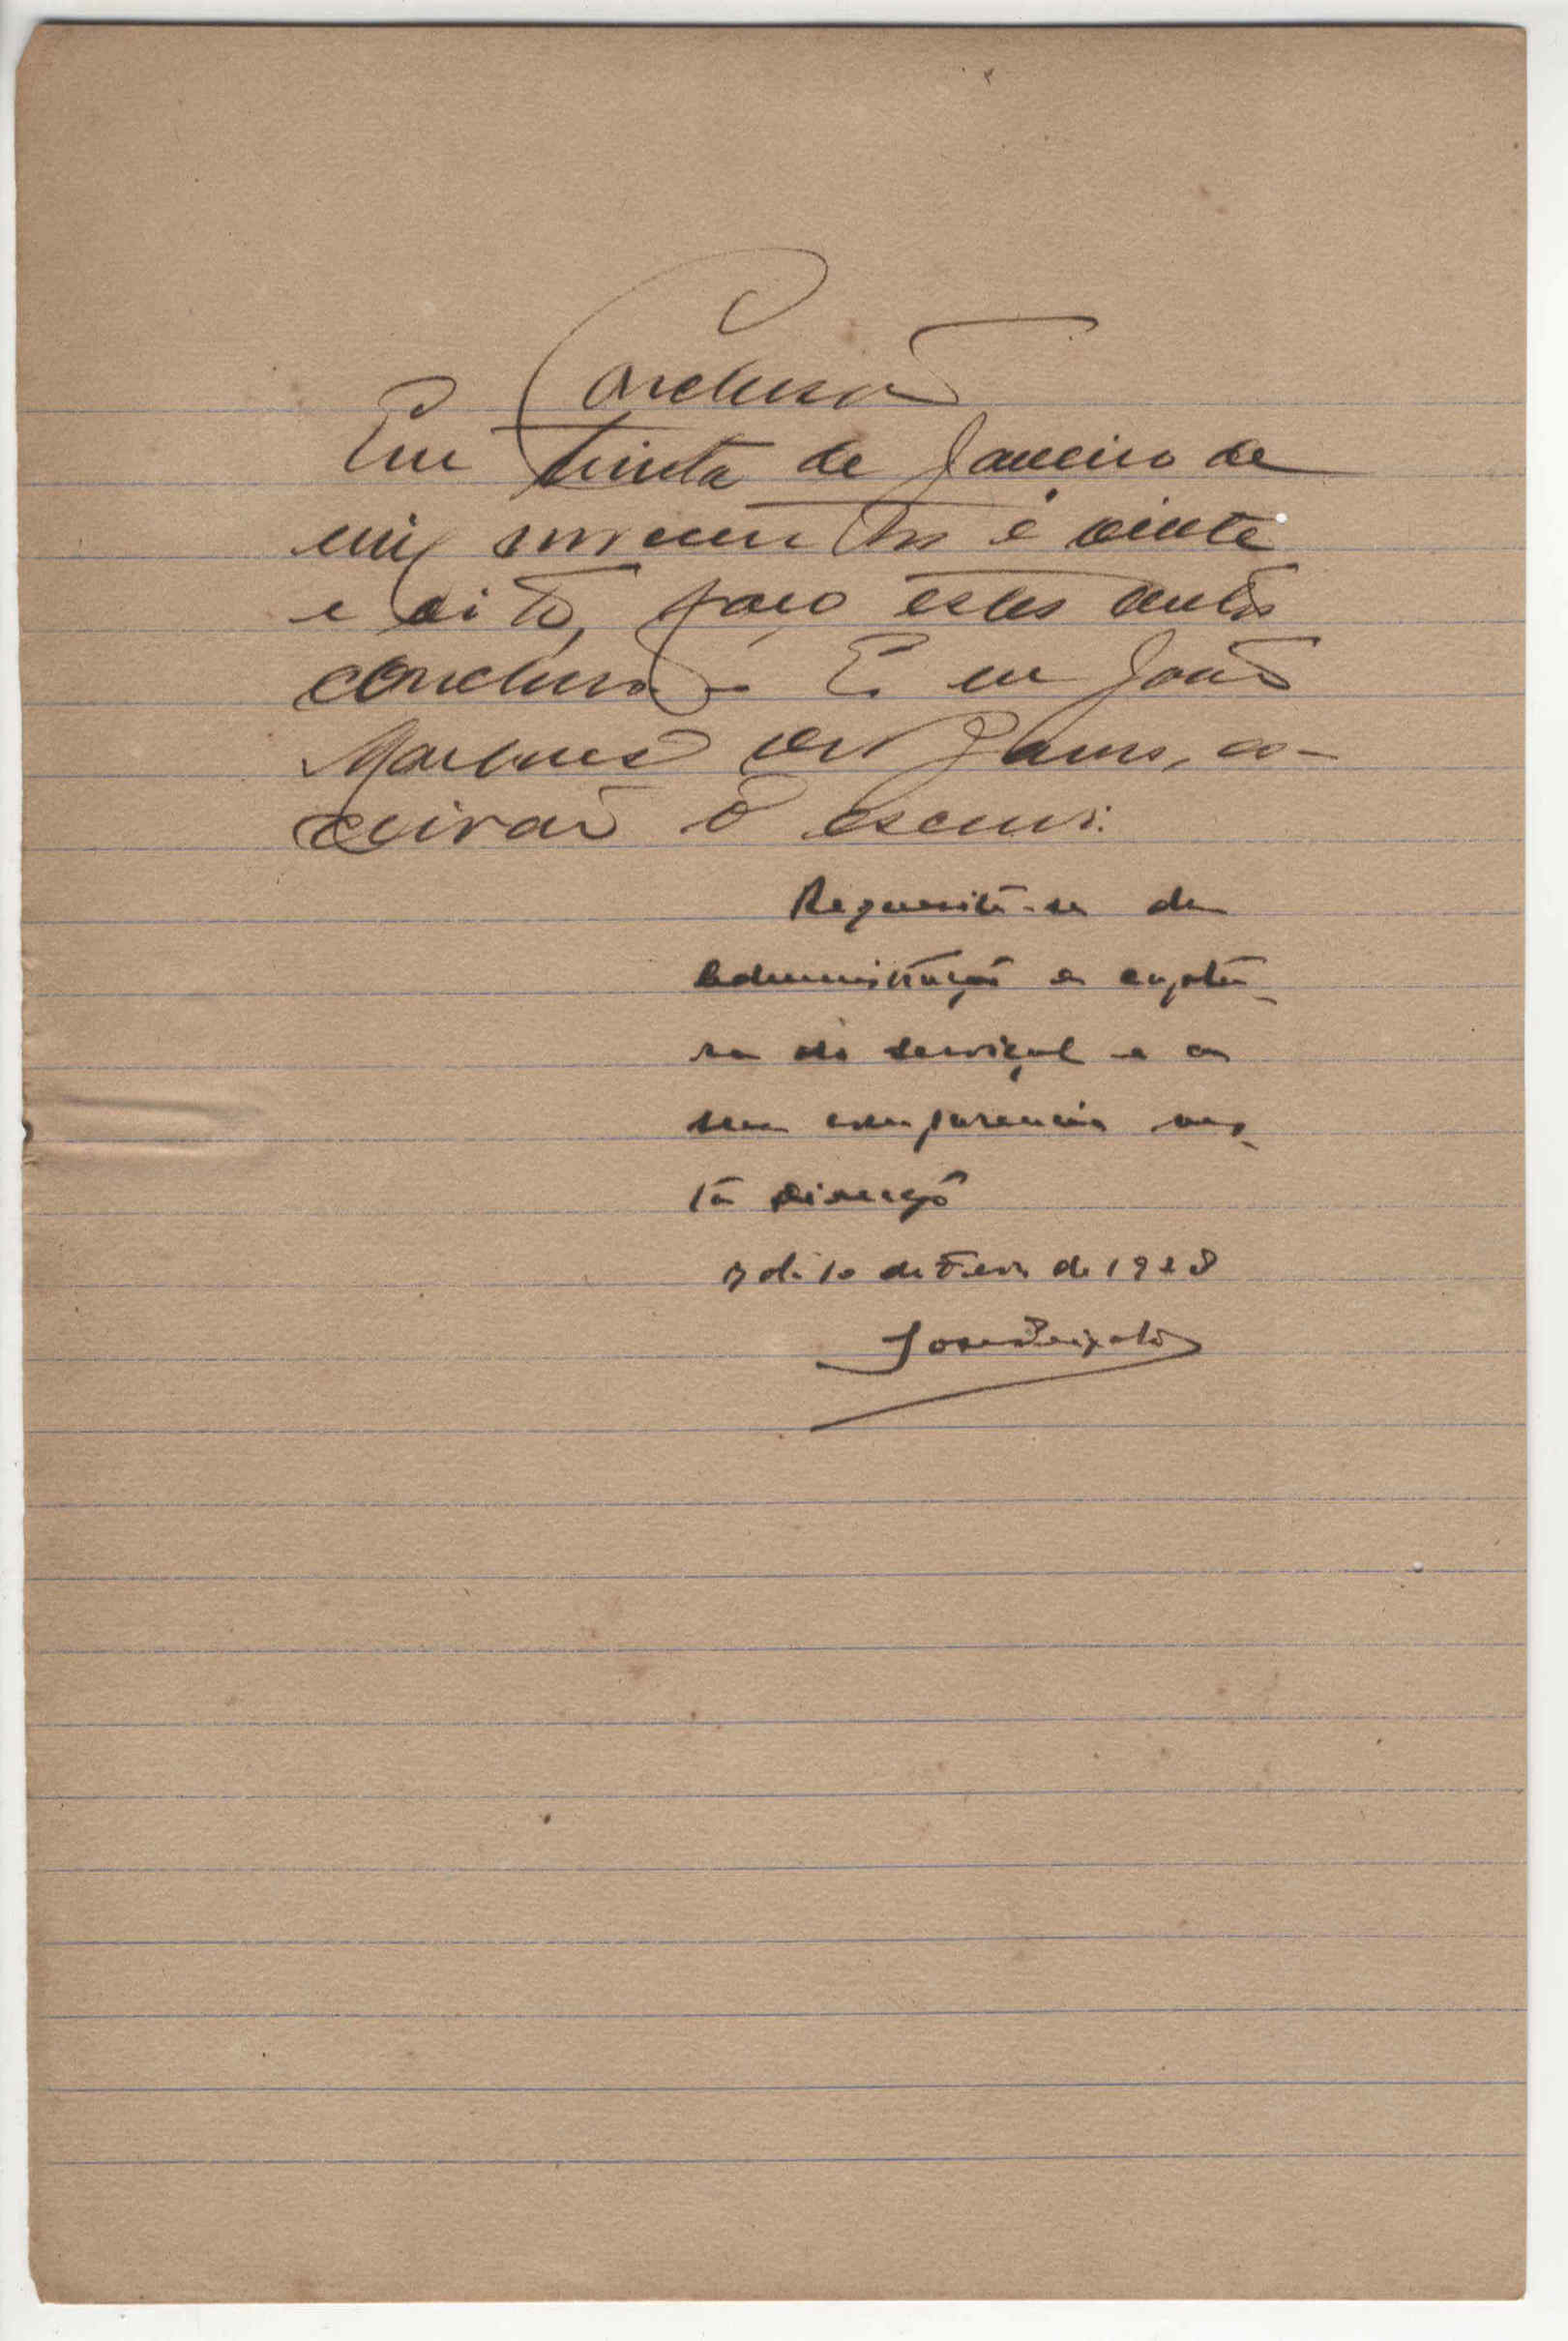 Conclusão
Em trinta de Janeiro de
mil novecentos e vinte
e oito, faço estes autos
conclusos. E eu João
Marques dos Ramos, es-
crivão o escrevi.
Requesite-se da
administração a captu-
ra do serviçal e a
sua comparencia nes-
ta Direcção
10 de Fevº de 1928
José Peixoto